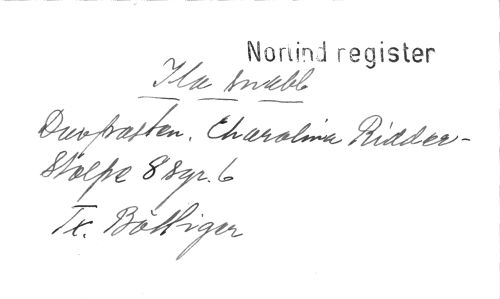 Norlind register
Ila snabb
Duvposten. Charolina Ridder-
Stolpe 8 syr. 6
Tx. Böttiger